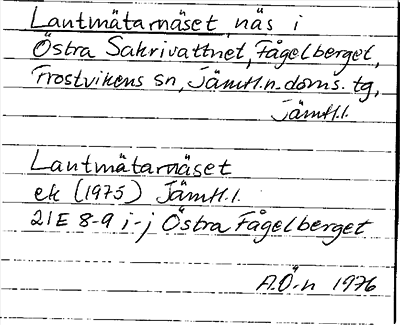 Lantmätarnäset, näs i
Östra Sakrivattnet, Fågelberget,
Frostvikens sn, Jämtl.n.doms. tg,
Jämtl.l.
Lantmätarnäset
ek (1975) Jämtl.l.
21E 8-9 i-j Östra Fågelberget
A.Ö-n 1976